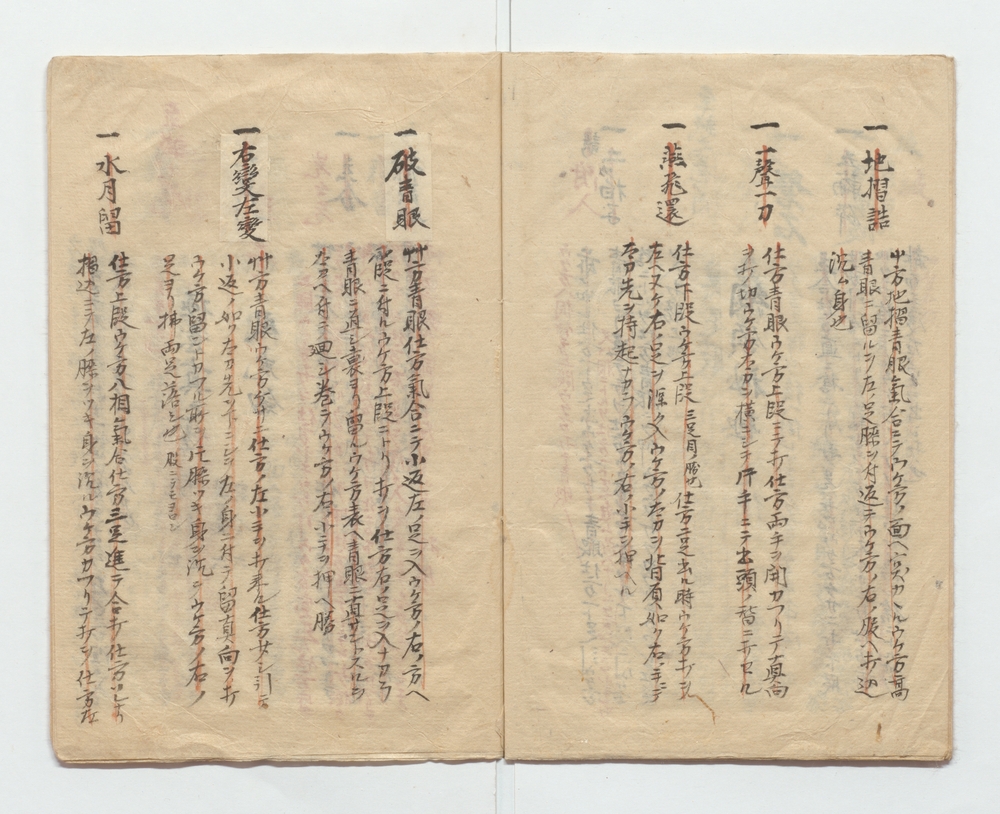 一 地摺詰
仕方地摺青眼氣合ニテウケ方ノ面ヘ突カヽルウケ方髙
青眼ニ留ルヲ左ノ足膝ヲ付返テウケ方ノ右ノ腹ヘ打込
沈ム身也
一 一聲一刀
仕方青眼ウケ方上段ミテ打仕方両手ヲ開カフリテ真向
ヲ打切ウケ方太刀ヲ横ニシテ片手ニテ出頭ノ
一 燕飛還
仕方下段ウケ方上段三足目ノ 仕方二足出ル時ウケ方打ヲ
左ヘヌケ右ノ足ヲ深ク入ウケ方ノ太刀ヲ背負如ク右ノ手ニテ
太刀先ヲ持起ナカラウケ方ノ右ノ小手ヲ押ヘル
一 破青眼
廾方青眼仕方氣合ニテ小返左ノ足ヲ入ウケ方ノ右ノ方ヘ
下段ニ付ルウケ方上段ニトリ打ヲ仕方右ノ足ヲ入ナカラ
青眼ニ直シ裏ヨリ留ルウケ方表ヘ青眼ニ直サントスルヲ
太刀ヘ付テ廻シ巻テウケ方ノ右ノ小手ヲ押ヘ勝
一 右變左變
廾方青眼ウケ方 仕方ノ左小手ヲ打来ル仕方 引テ
小返ノ如ク太刀先ヲ下ニシテ左ノ身ニ付テ留真向ヲ打
ウケ方留ントカフル所ヲ片膝ツキ身ヲ沈テウケ方ノ右ノ
足ヨリ拂両足落シ也 股ニテモヨシ
一 水月留
仕方上段ウケ方八相氣合仕方三足進テ合打仕方
摺込ミテ左ノ膝ヲツキ身ヲ沈ルウケ方カフリテ打ヲ仕方左